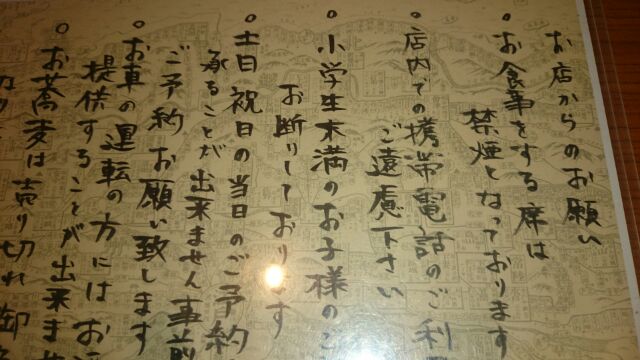 お店からのお願い
。お食事をする席は
禁煙となっております
。店内での携帯電話のご利
ご遠慮下さい
。小学生末満のお子様のご
お断りしております
。土日祝日の当日のご予約
承ることが出来ません事前
ご予約お願い致します
。お車の運転の方にはお
提供することが出来ま
。お蕎麦は売り切れ御